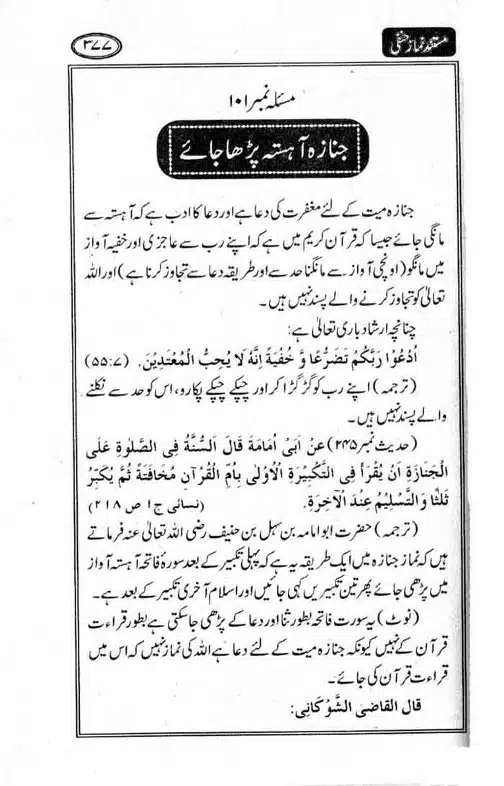 مستند نماز حنفی
۳۷۷
مسئلہ نمبر ۱۰۱
جنازہ آہستہ پڑھا جائے
جنازہ میت کے لئے مغفرت کی دعا ہے اور دعا کا ادب ہے کہ آہستہ سے
مانگی جائے جیسا کہ قرآن کریم میں ہے کہ اپنے رب سے عاجزی اور خفیہ آواز
میں مانگو (اونچی آواز سے مانگنا حد سے اور طریقہ دعا سے تجاوز کرنا ہے) اور اللہ
تعالیٰ کو تجاوز کرنے والے پسند نہیں ہیں۔
چنانچہ ارشاد باری تعالیٰ ہے:
اُدْعُوْا رَبَّكُمْ تَضَرُّعًا وَّ خُفْيَةً اِنَّهٗ لَا يُحِبُّ الْمُعْتَدِيْنَ. (۵۵:۷)
(ترجمہ) اپنے رب کو گڑگڑا کر اور چپکے چپکے پکارو، اس کو حد سے نکلنے
والے پسند نہیں ہیں۔
(حدیث نمبر ۲۴۵) عَنْ اَبِیْ اُمَامَةَ قَالَ اَلسُّنَّةُ فِی الصَّلٰوةِ عَلَی
الْجَنَازَةِ اَنْ يُقْرَأَ فِی التَّكْبِيْرَةِ الْاُوْلٰی بِاُمِّ الْقُرْآنِ مُخَافَتَةً ثُمَّ يُكَبِّرُ
ثَلٰثًا وَالتَّسْلِيْمُ عِنْدَ الْآخِرَةِ. (نسائی ج ۱ ص ۲۱۸)
(ترجمہ) حضرت ابو امامہ بن سہل بن حنیف رضی اللہ تعالیٰ عنہ فرماتے
ہیں کہ نماز جنازہ میں ایک طریقہ یہ ہے کہ پہلی تکبیر کے بعد سورۂ فاتحہ آہستہ آواز
میں پڑھی جائے پھر تین تکبیریں کہی جائیں اور اسلام آخری تکبیر کے بعد ہے۔
(نوٹ) یہ سورت فاتحہ بطور ثنا اور دعا کے پڑھی جا سکتی ہے بطور قراءت
قرآن کے نہیں کیونکہ جنازہ میت کے لئے دعا ہے اللہ کی نماز نہیں کہ اس میں
قراءت قرآن کی جائے۔
قال القاضی الشَّوْكَانِی: